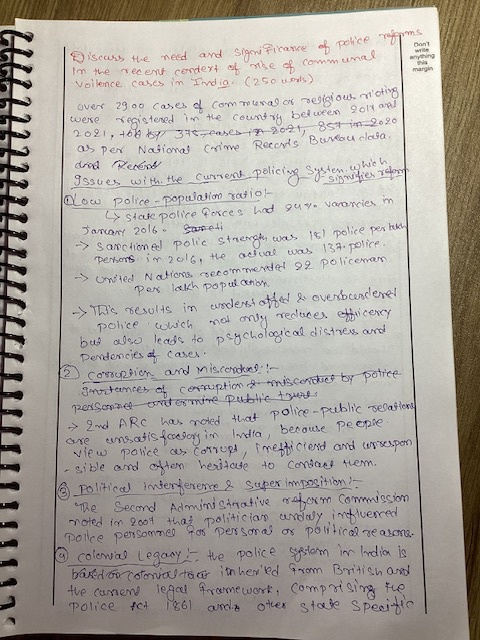 Discuss the need and significance of police reforms
in the recent context of rise of communal
voilence cases in India. (250 words)
Don't
write
anything
this
margin
over 2900 cases of communal or religious rioting
were registered in the country between 2017 and
2021, 378 cases in 2021, 857 in 2020
as per National Crime Records Bureau data.
Recent
Issues with the current policing System which
signifies reform
① Low police-population ratio:-
↳ state police forces had 24% vacancies in
January 2016.
→ Sanctioned polic strength was 181 police per lakh
persons in 2016, the actual was 137 police.
→ United Nations recommended 22 policeman
per lakh population
→ This results in understaffed & overburdened
police which not only reduces efficency
but also leads to psychological distress and
Pendencies of cases.
② corruption and misconduct:-
Instances of corruption & misconduct by police
personnel undermine public trust.
→ 2nd ARC has noted that police-public relations
are unsatisfactory in India, because people
view police as corrupt, inefficient and unrespon
-sible and often hesitate to contact them.
③ Political interference & Super imposition:-
The Second Administrative reform Commission
noted in 2007 that politician unduly influenced
police personnel for personal or political reasons.
④ colonial Legacy:- the police system in India is
based on colonial inherited from British and
the current legal framework, comprising the
Police Act 1861 and other state specific